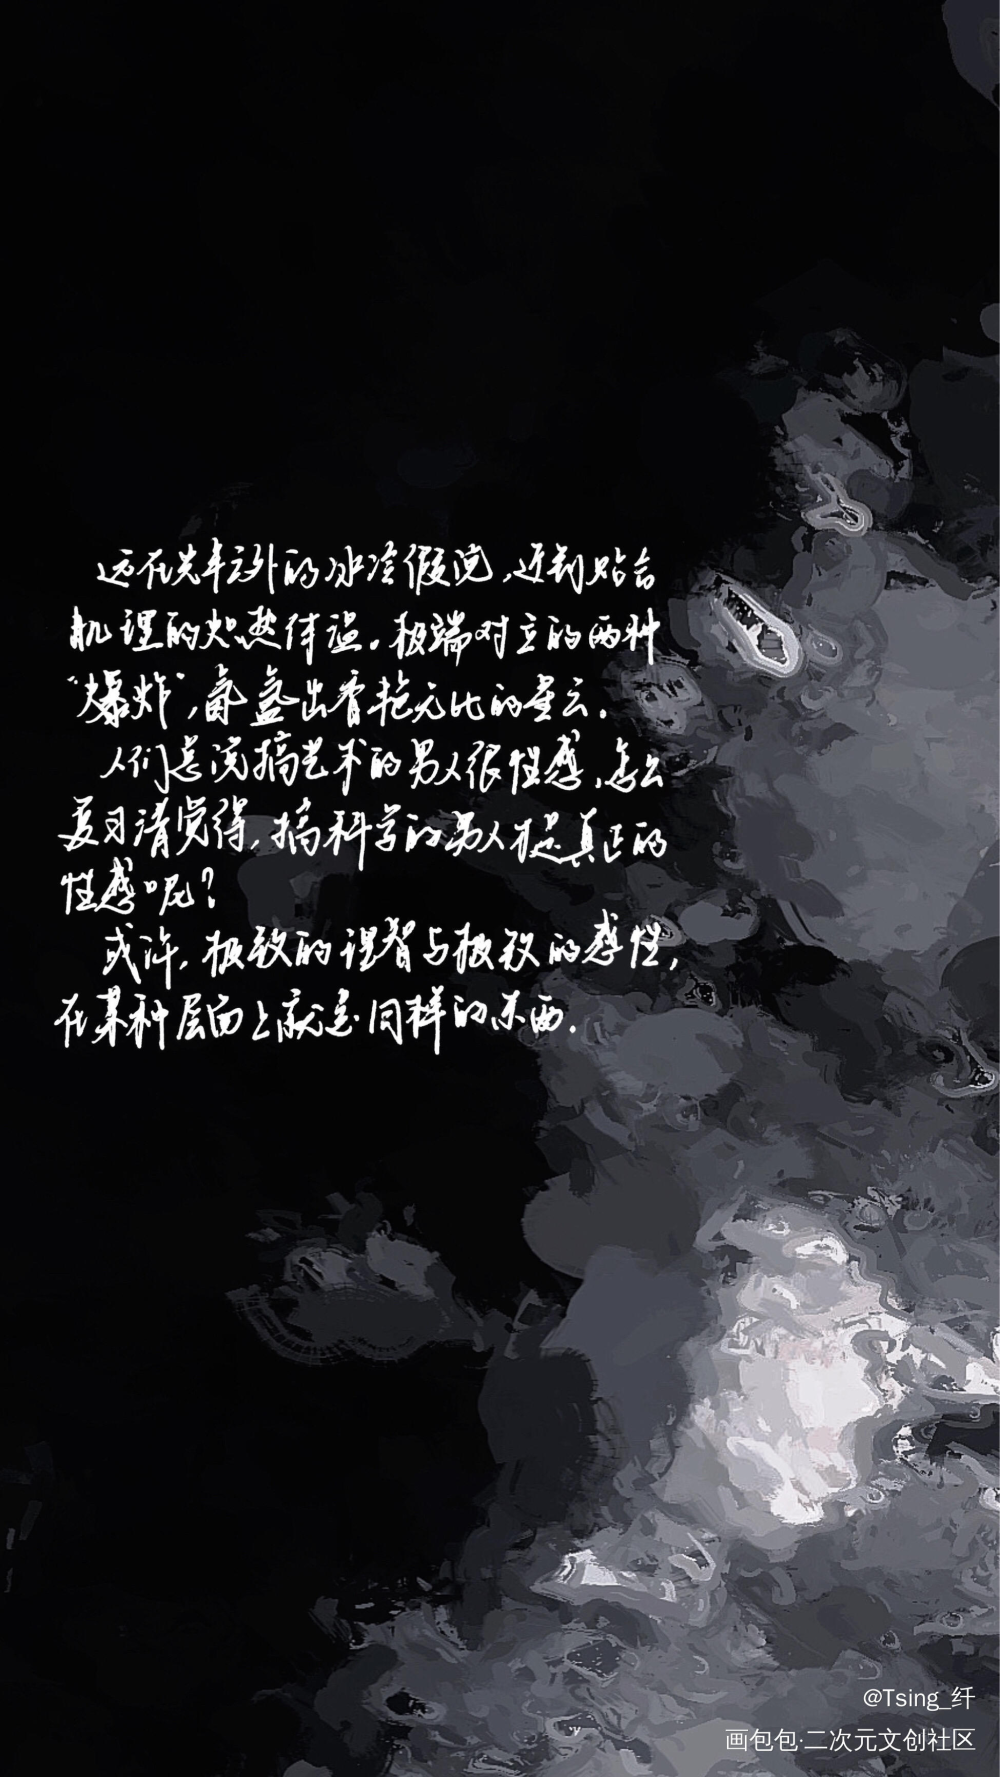 远在光年之外的冰冷假说，近到贴合
肌理的炽热体温。极端对立的两种
“爆炸”，氤氲出香艳无比的星云。
人们总说搞艺术的男人很性感，怎么
夏习清觉得，搞科学的男人才是真正的
性感呢？
或许，极致的理智与极致的感性，
在某种层面上就是同样的东西。
@Tsing_纤
画包包·二次元文创社区